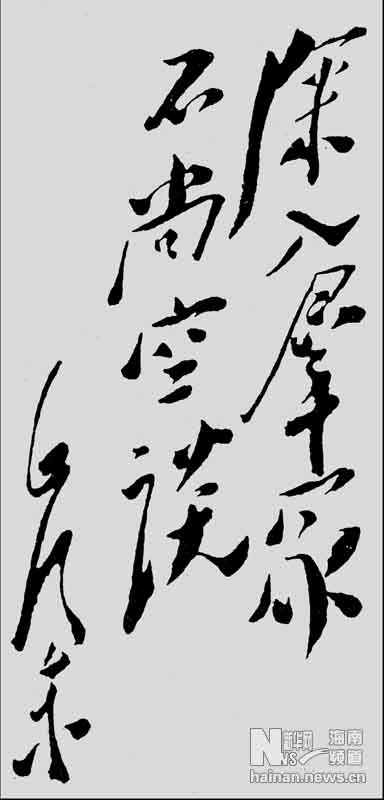 深入羣众
不尚空谈
毛泽东
新华网
NEWS
海南
频道
hainan.news.cn